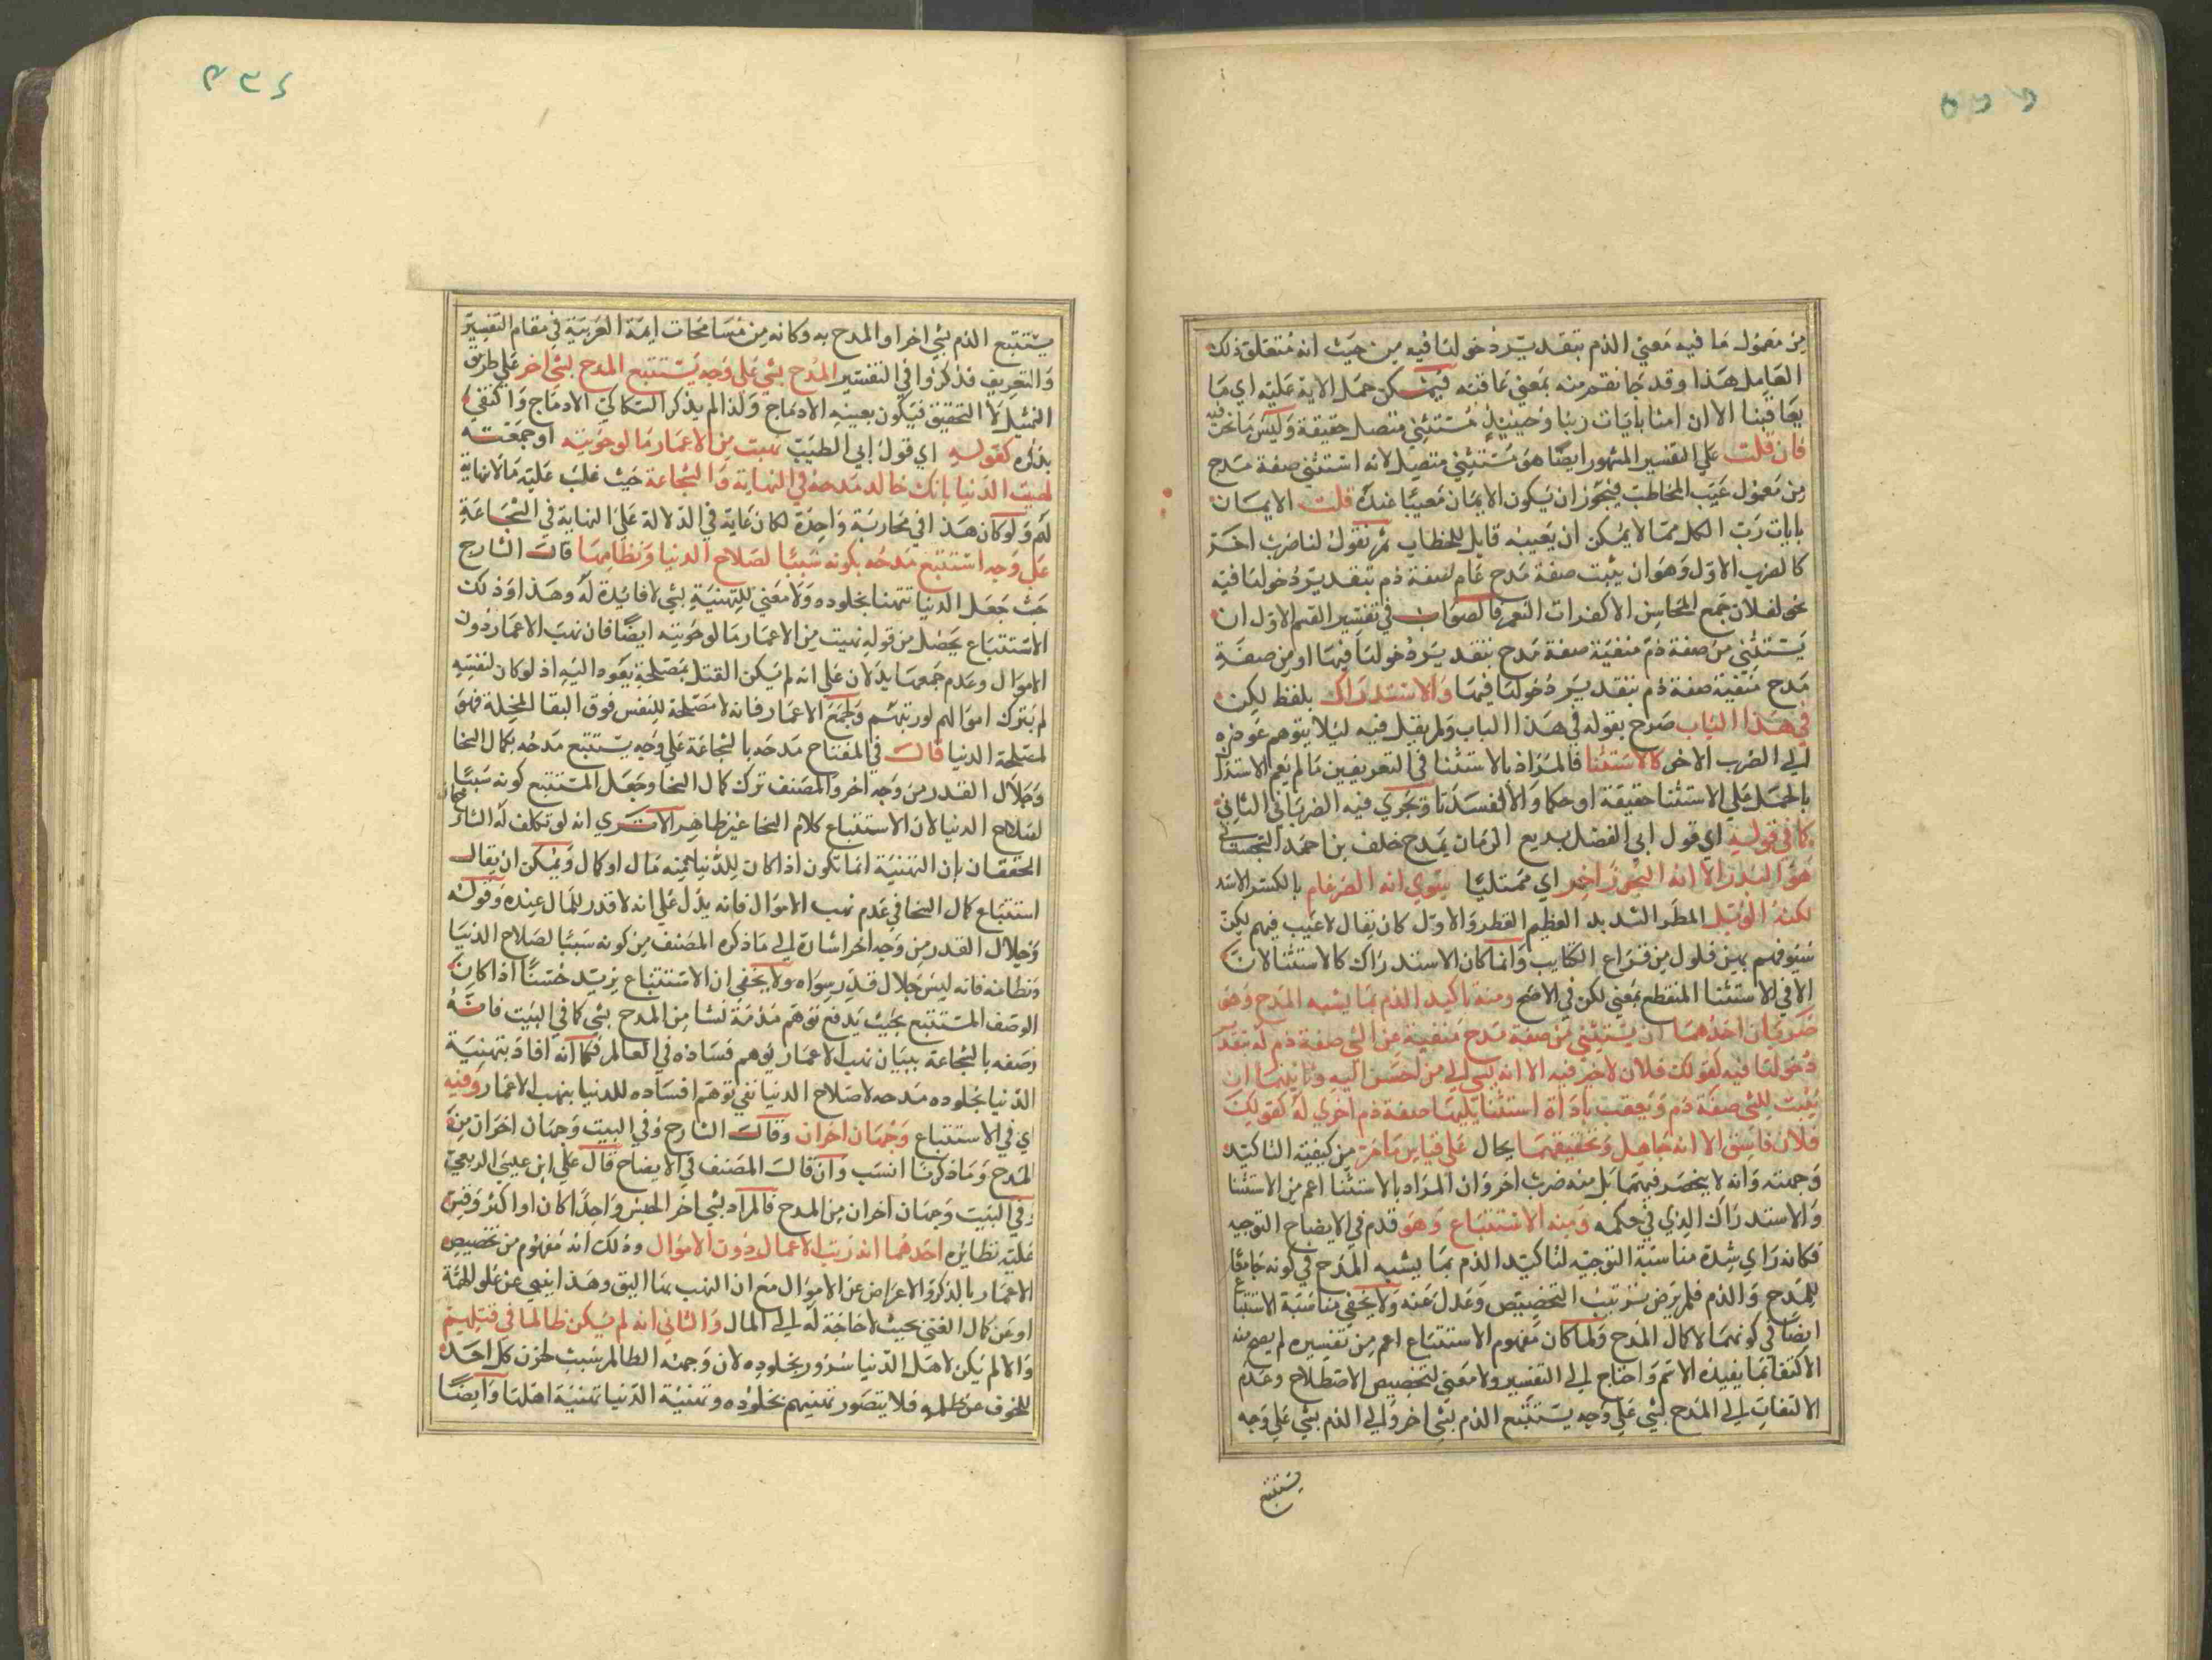 من معمول ما فيه معنى الذم بتقدير دخولها فيه من حيث انه متعلق ذلك
العامل هذا وقد جا نقم منه بمعنى عاقبه فيمكن حمل الاية عليه اي ما
يعاقبنا الا ان امنا بايات ربنا وحينئذ مستثنى متصل حقيقة وليس ما نحن فيه
فان قلت على التفسير المشهور ايضا هو مستثنى متصل لانه استثنى صفة مدح
من معمول عيب المخاطب فيجوز ان يكون الايمان معيبا عنده قلت الايمان
بايات رب الكل مما لا يمكن ان يعيبه قابل للخطاب ثم نقول لنا ضرب اخر
كالضرب الاول وهو ان يثبت صفة مدح عام لصفة ذم بتقدير دخولها فيه
نحو لفلان جمع المحاسن الا كفران النعم فالصواب في تفسير القسم الاول ان
يستثنى من صفة ذم منفية صفة مدح بتقدير دخولها فيها او من صفة
مدح منفية صفة ذم بتقدير دخولها فيها والاستدراك بلفظ لكن
في هذا الباب صرح بقوله في هذا الباب ولم يقل فيه ليلا يتوهم عوده
الى الضرب الاخر كالاستثنا فالمراد بالاستثنا في التعريفين ما لم يعم الاستدرا
بالحمل على الاستثنا حقيقة او حكما والا لفسدتا وتجري فيه الضربا في الثاني
كما في قوله اي قول ابى الفضل بديع الزمان يمدح خلف بن احمد السجستاني
هو البدر الا انه البحر زاخر اي ممتليا سوى انه الضرغام بالكسر الاسد
لكنه الوبل المطر الشديد العظيم القطر والاول كان يقال لا عيب فيهم لكن
سيوفهم بهن فلول من قراع الكتايب وانما كان الاستدراك كالاستثنا لان
الا في الاستثنا المنقطع بمعنى لكن في الاصح ومنه تاكيد الذم بما يشبه المدح وهو
ضربان احدهما ان يستثنى من صفة مدح منفية عن الشي صفة ذم له بتقدير
دخولها فيه كقولك فلان لا خير فيه الا انه يسي الى من احسن اليه وثانيهما ان
يثبت للشي صفة ذم ويعقب باداة استثنا يليها صفة ذم اخرى له كقولك
فلان فاسق الا انه جاهل وتحقيقهما يحال على قياس ما مر من كيفية التاكيد
وجهته وانه لا ينحصر فيهما بل منه ضرب اخر وان المراد بالاستثنا اعم من الاستثنا
والاستدراك الذي في حكمه ومنه الاستتباع وهو قدم في الايضاح التوجيه
فكانه راي شدة مناسبة التوجيه لتاكيد الذم بما يشبه المدح في كونه جامعا
للمدح والذم فلم يرض بترتيب التخصيص وعدل عنه ولا يخفى مناسبة الاستتباع
ايضا في كونهما لاكمال المدح ولما كان مفهوم الاستتباع اعم من تفسيره لم يصح منه
الاكتفا بما يفيده الاسم واحتاج الى التفسير ولا معنى لتخصيص الاصطلاح وعدم
الالتفات الى المدح بشي على وجه يستتبع الذم بشي اخر والى الذم بشي على وجه
يستتبع
يستتبع الذم بشي اخر او المدح به وكانه من مسامحات ايمة العربية في مقام التفسير
والتعريف فذكروا في التفسير المدح بشي على وجه يستتبع المدح بشي اخر على طريق
التمثيل لا التحقيق فيكون بعينه الادماج ولذا لم يذكر السكاكي الادماج واكتفى
بذكره كقوله اي قول ابي الطيب نهبت من الاعمار ما لو حويته او جمعته
لهنيت الدنيا بانك خالد مدحه في النهاية والشجاعة حيث غلب عليه ما لا نهاية
لهم ولو كان هذا في محاربة واحدة لكان غاية في الدلالة على النهاية في الشجاعة
على وجه استتبع مدحه بكونه سببا لصلاح الدنيا ونظامها قال الشارح
حيث جعل الدنيا تتهنا بخلوده ولا معنى للتهنية بشي لا فايدة له وهذا وذلك
الاستتباع يحصل من قوله نهبت من الاعمار ما لو حويته ايضا فان نهب الاعمار دون
الاموال وعدم جمعها يدلان على انه لم يكن القتل بمصلحة يعود اليه اذ لو كان لنفسه
لم يترك اموالهم لورثتهم ولجمع الاعمار فانه لا مصلحة للنفس فوق البقا المخيلة فهو
لمصلحة الدنيا قال في المفتاح مدحه بالشجاعة على وجه يستتبع مدحه بكمال السخا
وجلال القدر من وجه اخر والمصنف ترك كمال السخا وجعل المستتبع كونه سببا
لصلاح الدنيا لان الاستتباع كلام السخا غير ظاهر الا ترى انه لو تكلف له الشارحان
المحققان بان التهنية انما تكون اذا كان للدنيا منه مال او كمال ويمكن ان يقال
استتباع كمال السخا في عدم نهب الاموال فانه يدل على انه لا قدر للمال عنده وقوله
وجلال القدر من وجه اخر اشارة الى ما ذكره المصنف من كونه سببا لصلاح الدنيا
ونظامه فانه ليس جلال قدر سواه ولا يخفى ان الاستتباع يزيد حسنا اذا كان
الوصف المستتبع بحيث يدفع توهم مذمة نشا من المدح بشي كما في البيت فانه
وصفه بالشجاعة ببيان نهب الاعمار يوهم فساده في العالم فكما انه افاد بتهنية
الدنيا بخلوده مدحه لاصلاح الدنيا نفي توهم افساده للدنيا بنهب الاعمار وفيه
اي في الاستتباع وجهان اخران وقال الشارح وفي البيت وجهان اخران من
المدح وما ذكرنا انسب وان قال المصنف في الايضاح قال علي ابن عيسى الربعي
وفي البيت وجهان اخران من المدح فالمراد بشي اخر الجنس واحدا كان او اكثر وقس
عليه نظائره احدهما انه نهب الاعمار دون الاموال وذلك انه مفهوم من تخصيص
الاعمار بالذكر والاعراض عن الاموال مع ان النهب بها اليق وهذا ينبي عن علو الهمة
او عن كمال الغنى بحيث لا حاجة له الى المال والثاني انه لم يكن ظالما في قتلهم
والا لم يكن لاهل الدنيا سرور بخلوده لان وجهه الظالم سبب لحزن كل احد
للخوف عن ظلمه فلا يتصور تهنيهم بخلوده وتهنية الدنيا تهنية اهلها وايضا